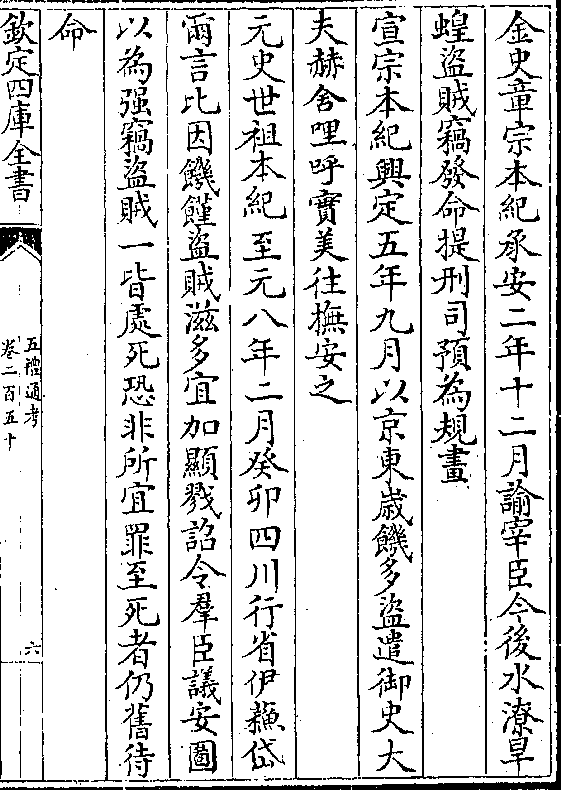 金史章宗本紀承安二年十二月諭宰臣今後水潦旱
蝗盜賊竊發命提刑司預為規畫
宣宗本紀興定五年九月以京東歳饑多盜遣御史大
夫赫舍哩呼實美往撫安之
元史世祖本紀至元八年二月癸卯四川行省伊蘓岱
爾言比因饑饉盜賊滋多宜加顯戮詔令羣臣議安圖
以為强竊盜賊一皆處死恐非所宜罪至死者仍舊待
命
欽定四庫全書
五禮通考
卷二百五十
六